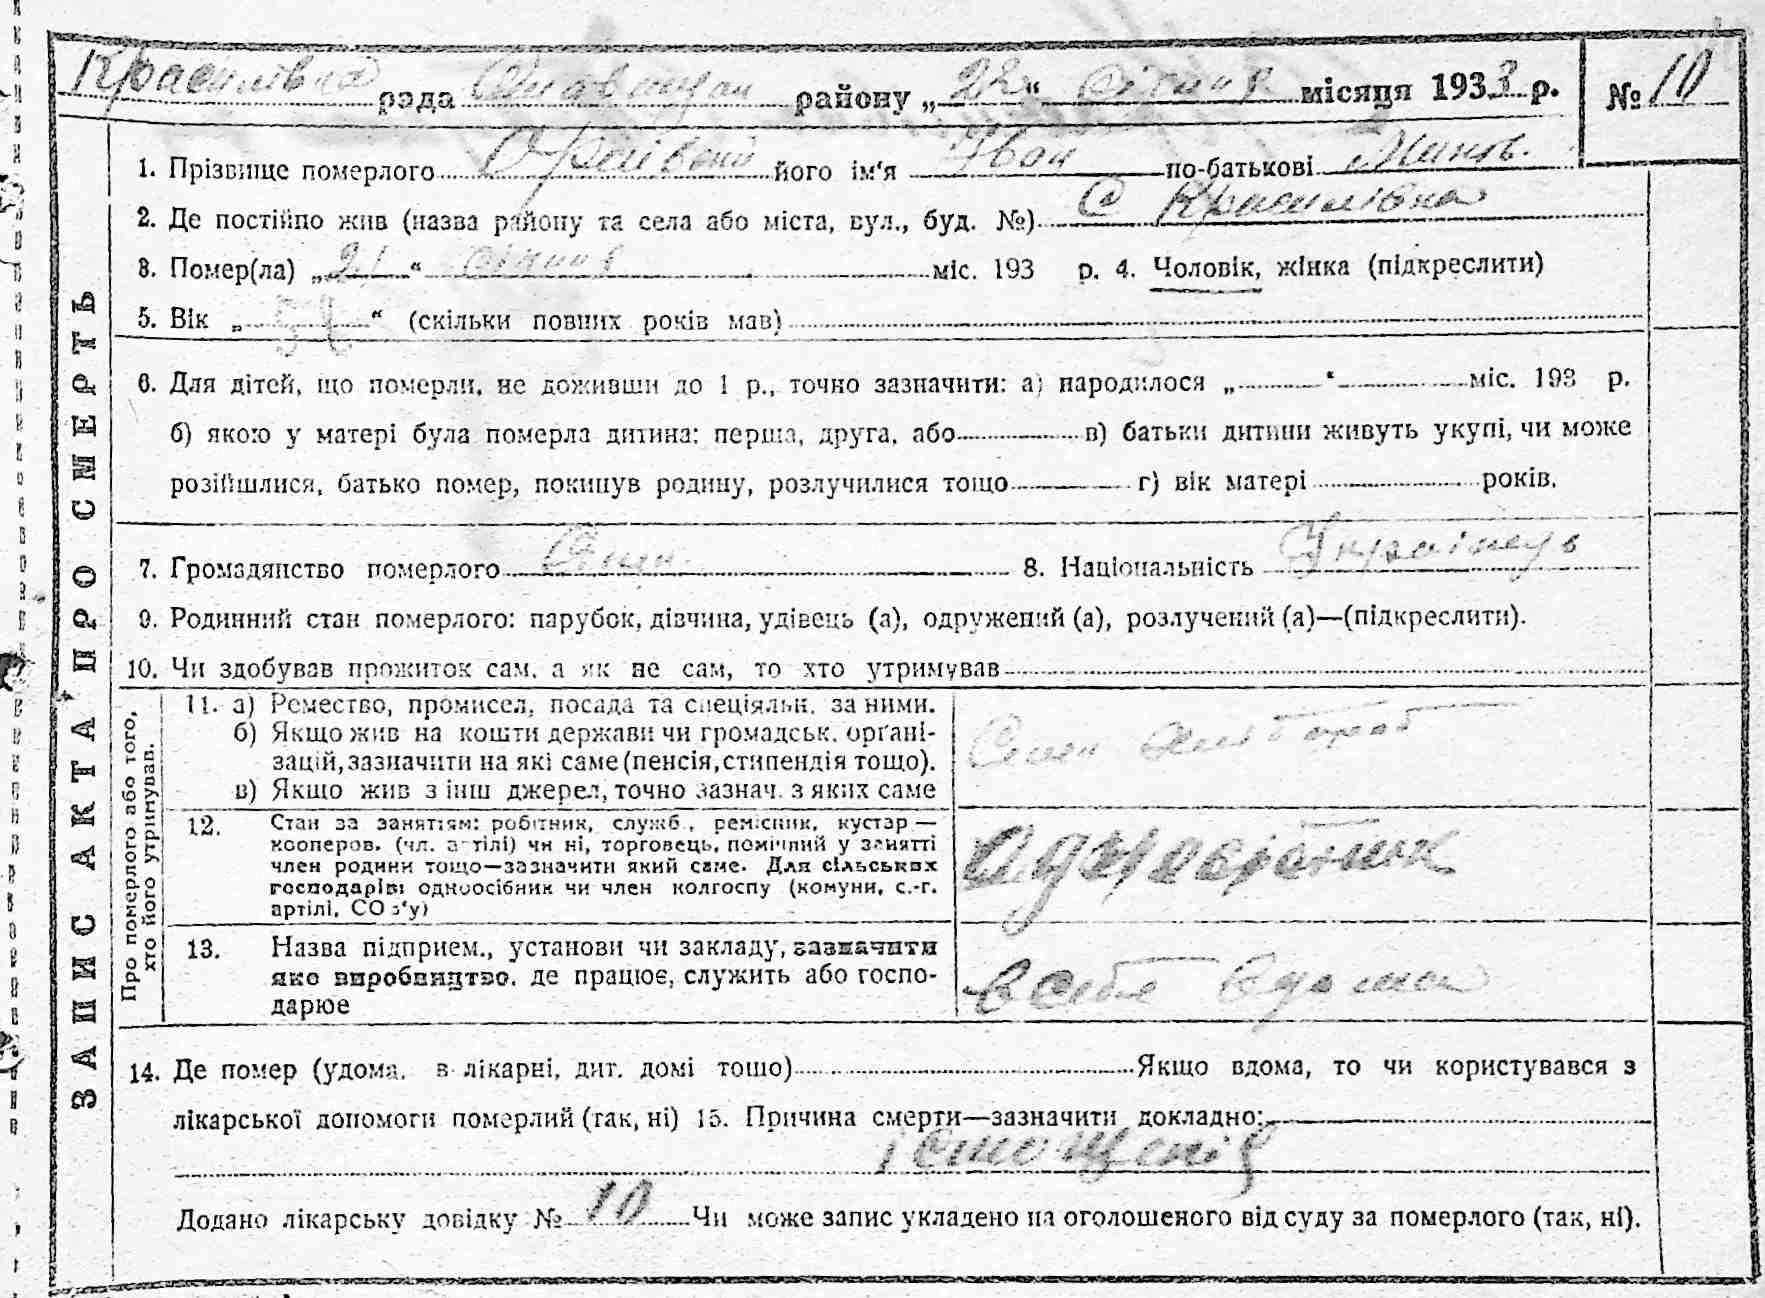 Красилівка рада Ставищан району „22“ січня місяця 1933 р. № 10
ЗАПИС АКТА ПРО СМЕРТЬ
1. Прізвище померлого його ім'я Іван по-батькові
2. Де постійно жив (назва району та села або міста, вул., буд. №) С Красилівка
3. Помер(ла) „21“ січня міс. 193 р. 4. Чоловік, жінка (підкреслити)
5. Вік „ “ (скільки повних років мав)
6. Для дітей, що померли, не доживши до 1 р., точно зазначити: а) народилося „ “ міс. 193 р.
б) якою у матері була померла дитина: перша, друга, або в) батьки дитини живуть укупі, чи може
розійшлися, батько помер, покинув родину, розлучилися тощо г) вік матері років.
7. Громадянство померлого 8. Національність Українець
9. Родинний стан померлого: парубок, дівчина, удівець (а), одружений (а), розлучений (а)—(підкреслити).
10. Чи здобував прожиток сам, а як не сам, то хто утримував
Про померлого або того, хто його утримував.
11. а) Ремество, промисел, посада та спеціяльн. за ними.
б) Якщо жив на кошти держави чи громадськ. орґані-
зацій, зазначити на які саме (пенсія, стипендія тощо).
в) Якщо жив з інш джерел, точно зазнач. з яких саме
12. Стан за заняттям: робітник, служб., ремісник, кустар—
кооперов. (чл. артілі) чи ні, торговець, помічний у занятті
член родини тощо—зазначити який саме. Для сільських
господарів: одноосібник чи член колгоспу (комуни, с.-г.
артілі, СОЗ'у)
Одноосібник
13. Назва підприєм., установи чи закладу, зазначити
яке виробництво, де працює, служить або госпо-
дарює
в себе вдома
14. Де помер (удома, в лікарні, дит. домі тощо) Якщо вдома, то чи користувався з
лікарської допомоги померлий (так, ні) 15. Причина смерти—зазначити докладно:
істощенія
Додано лікарську довідку № 10 Чи може запис укладено на оголошеного від суду за померлого (так, ні).